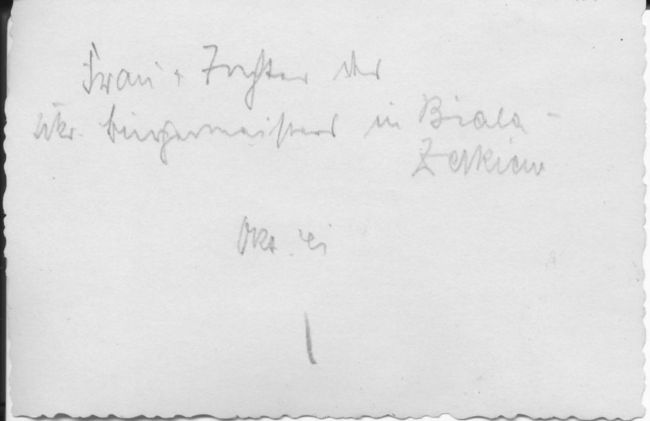 Frau + Tochter des
ukr. bürgermeisters in Biala -
Zerkiew
Okt. 41